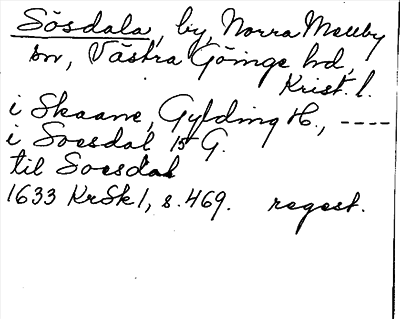 Sösdala, by, Norra Mellby
sn, Västra Göinge hd,
Krist. l.
i Skaane, Gylding H., ----
i Soesdal 15 G.
til Soesdal
1633 KrSk1, s. 469. regest.